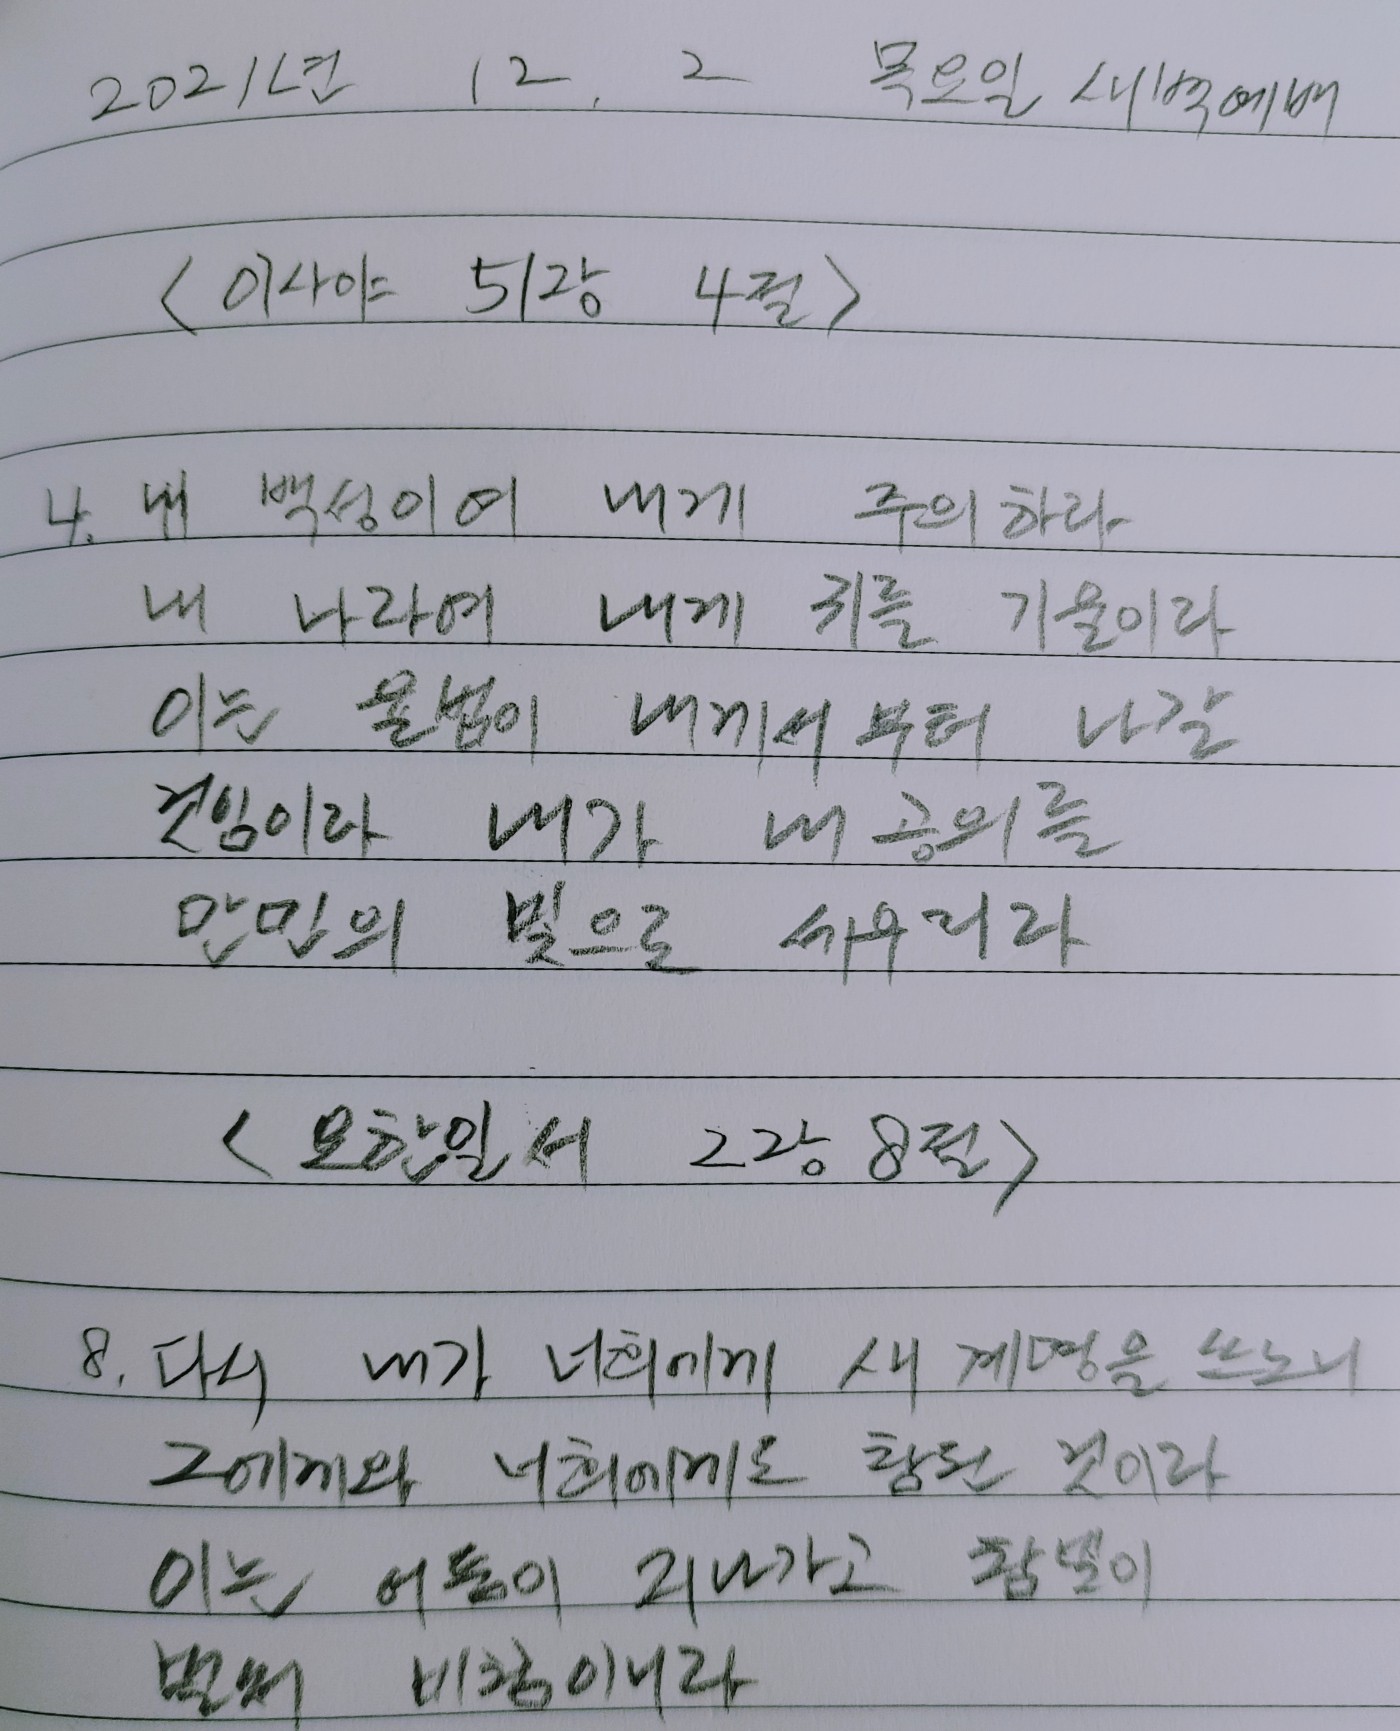 2021년 12. 2 목요일 새벽예배
<이사야 51장 4절>
4. 내 백성이여 내게 주의하라
내 나라여 내게 귀를 기울이라
이는 율법이 내게서부터 나갈
것임이라 내가 내 공의를
만민의 빛으로 세우리라
<요한일서 2장 8절>
8. 다시 내가 너희에게 새 계명을 쓰노니
그에게와 너희에게도 참된 것이라
이는 어둠이 지나가고 참빛이
벌써 비침이니라